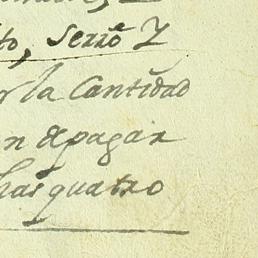 to, serrᵉ Y
r la Cantidad
n de pagar
has quatro